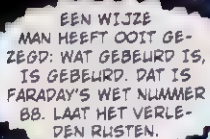 EEN WIJZE
MAN HEEFT OOIT GE-
ZEGD: WAT GEBEURD IS,
IS GEBEURD. DAT IS
FARADAY'S WET NUMMER
88. LAAT HET VERLE-
DEN RUSTEN.